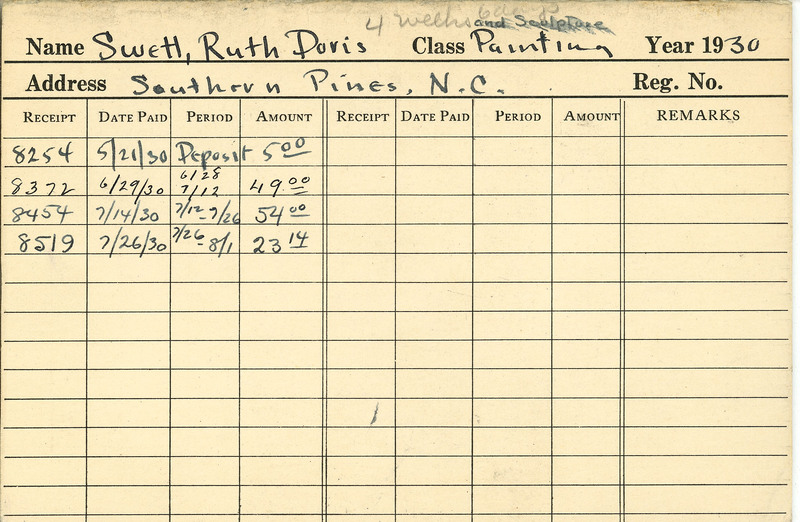 4 weeks 6 days
and Sculpture
Name Swett, Ruth Doris Class Painting Year 1930
Address Southern Pines, N.C. Reg. No.
RECEIPT DATE PAID PERIOD AMOUNT RECEIPT DATE PAID PERIOD AMOUNT REMARKS
8254 5/21/30 Deposit 5 00
8372 6/29/30 6/28 7/12 49.00
8454 7/14/30 7/12-7/26 54 00
8519 7/26/30 7/26-8/1 23 14